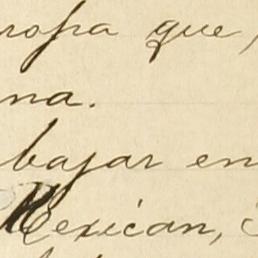 ropa que,
na.
bajar en
Mexican,